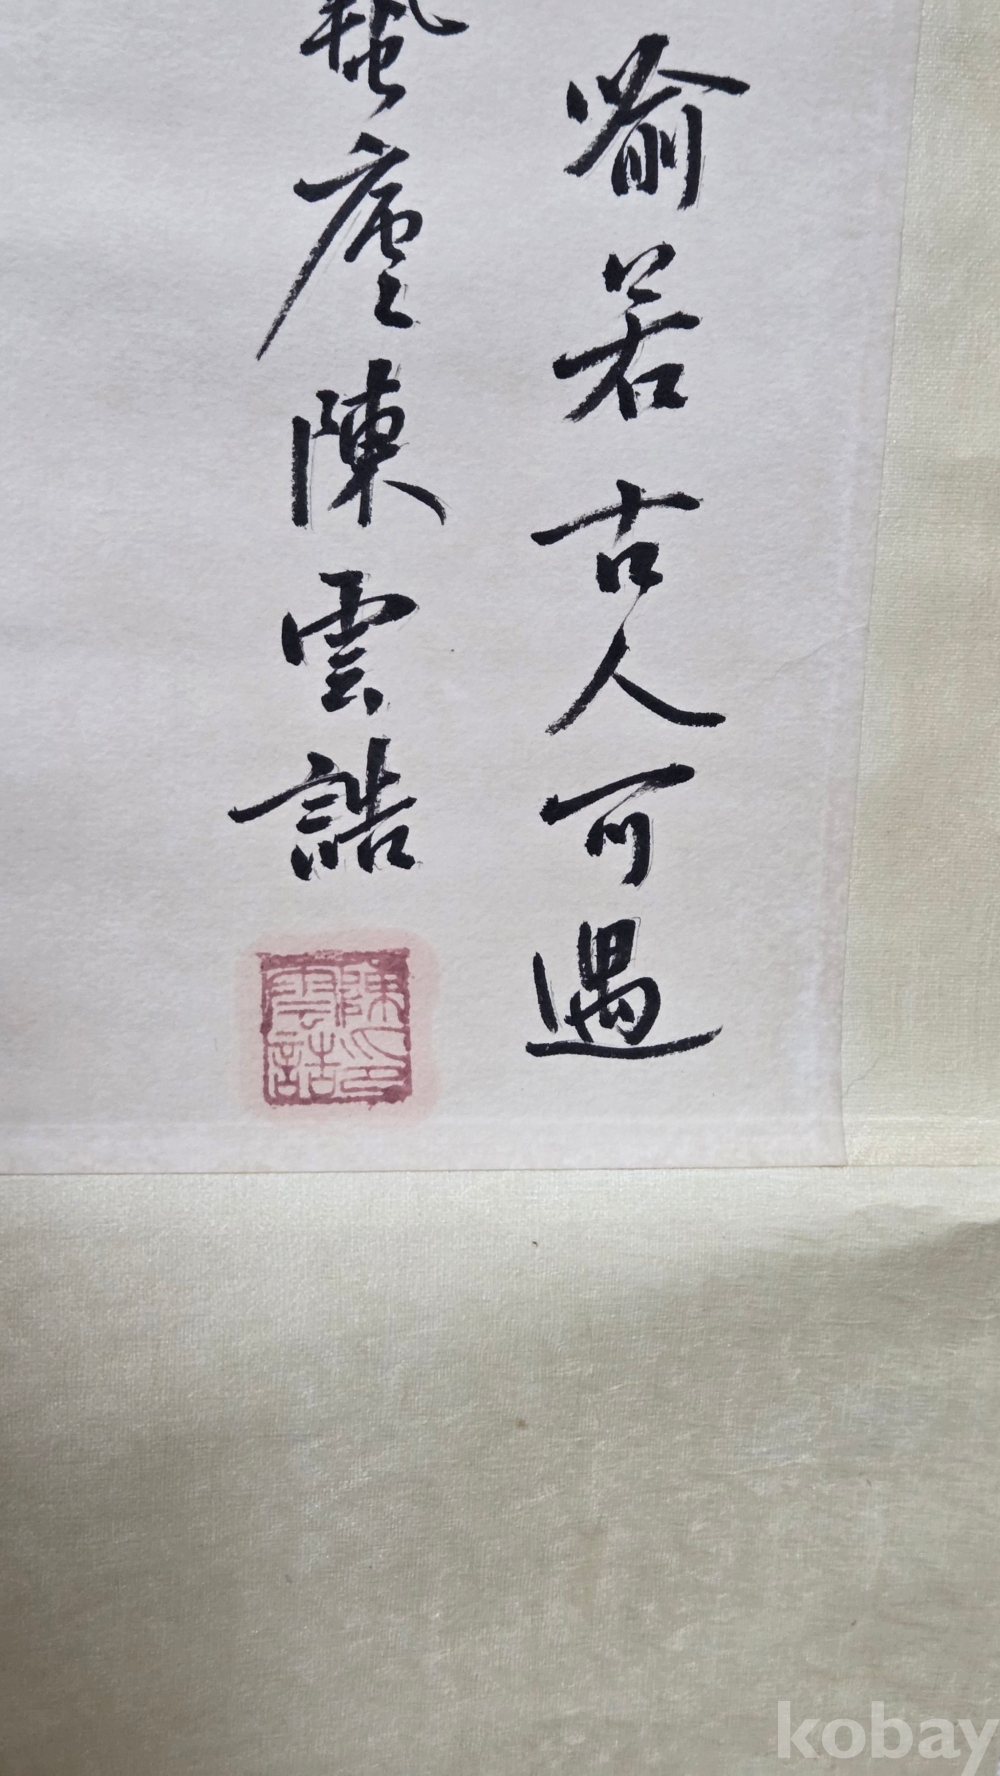 喻若古人可遇
蟄廬陳雲誥
陳印
雲誥
kobay